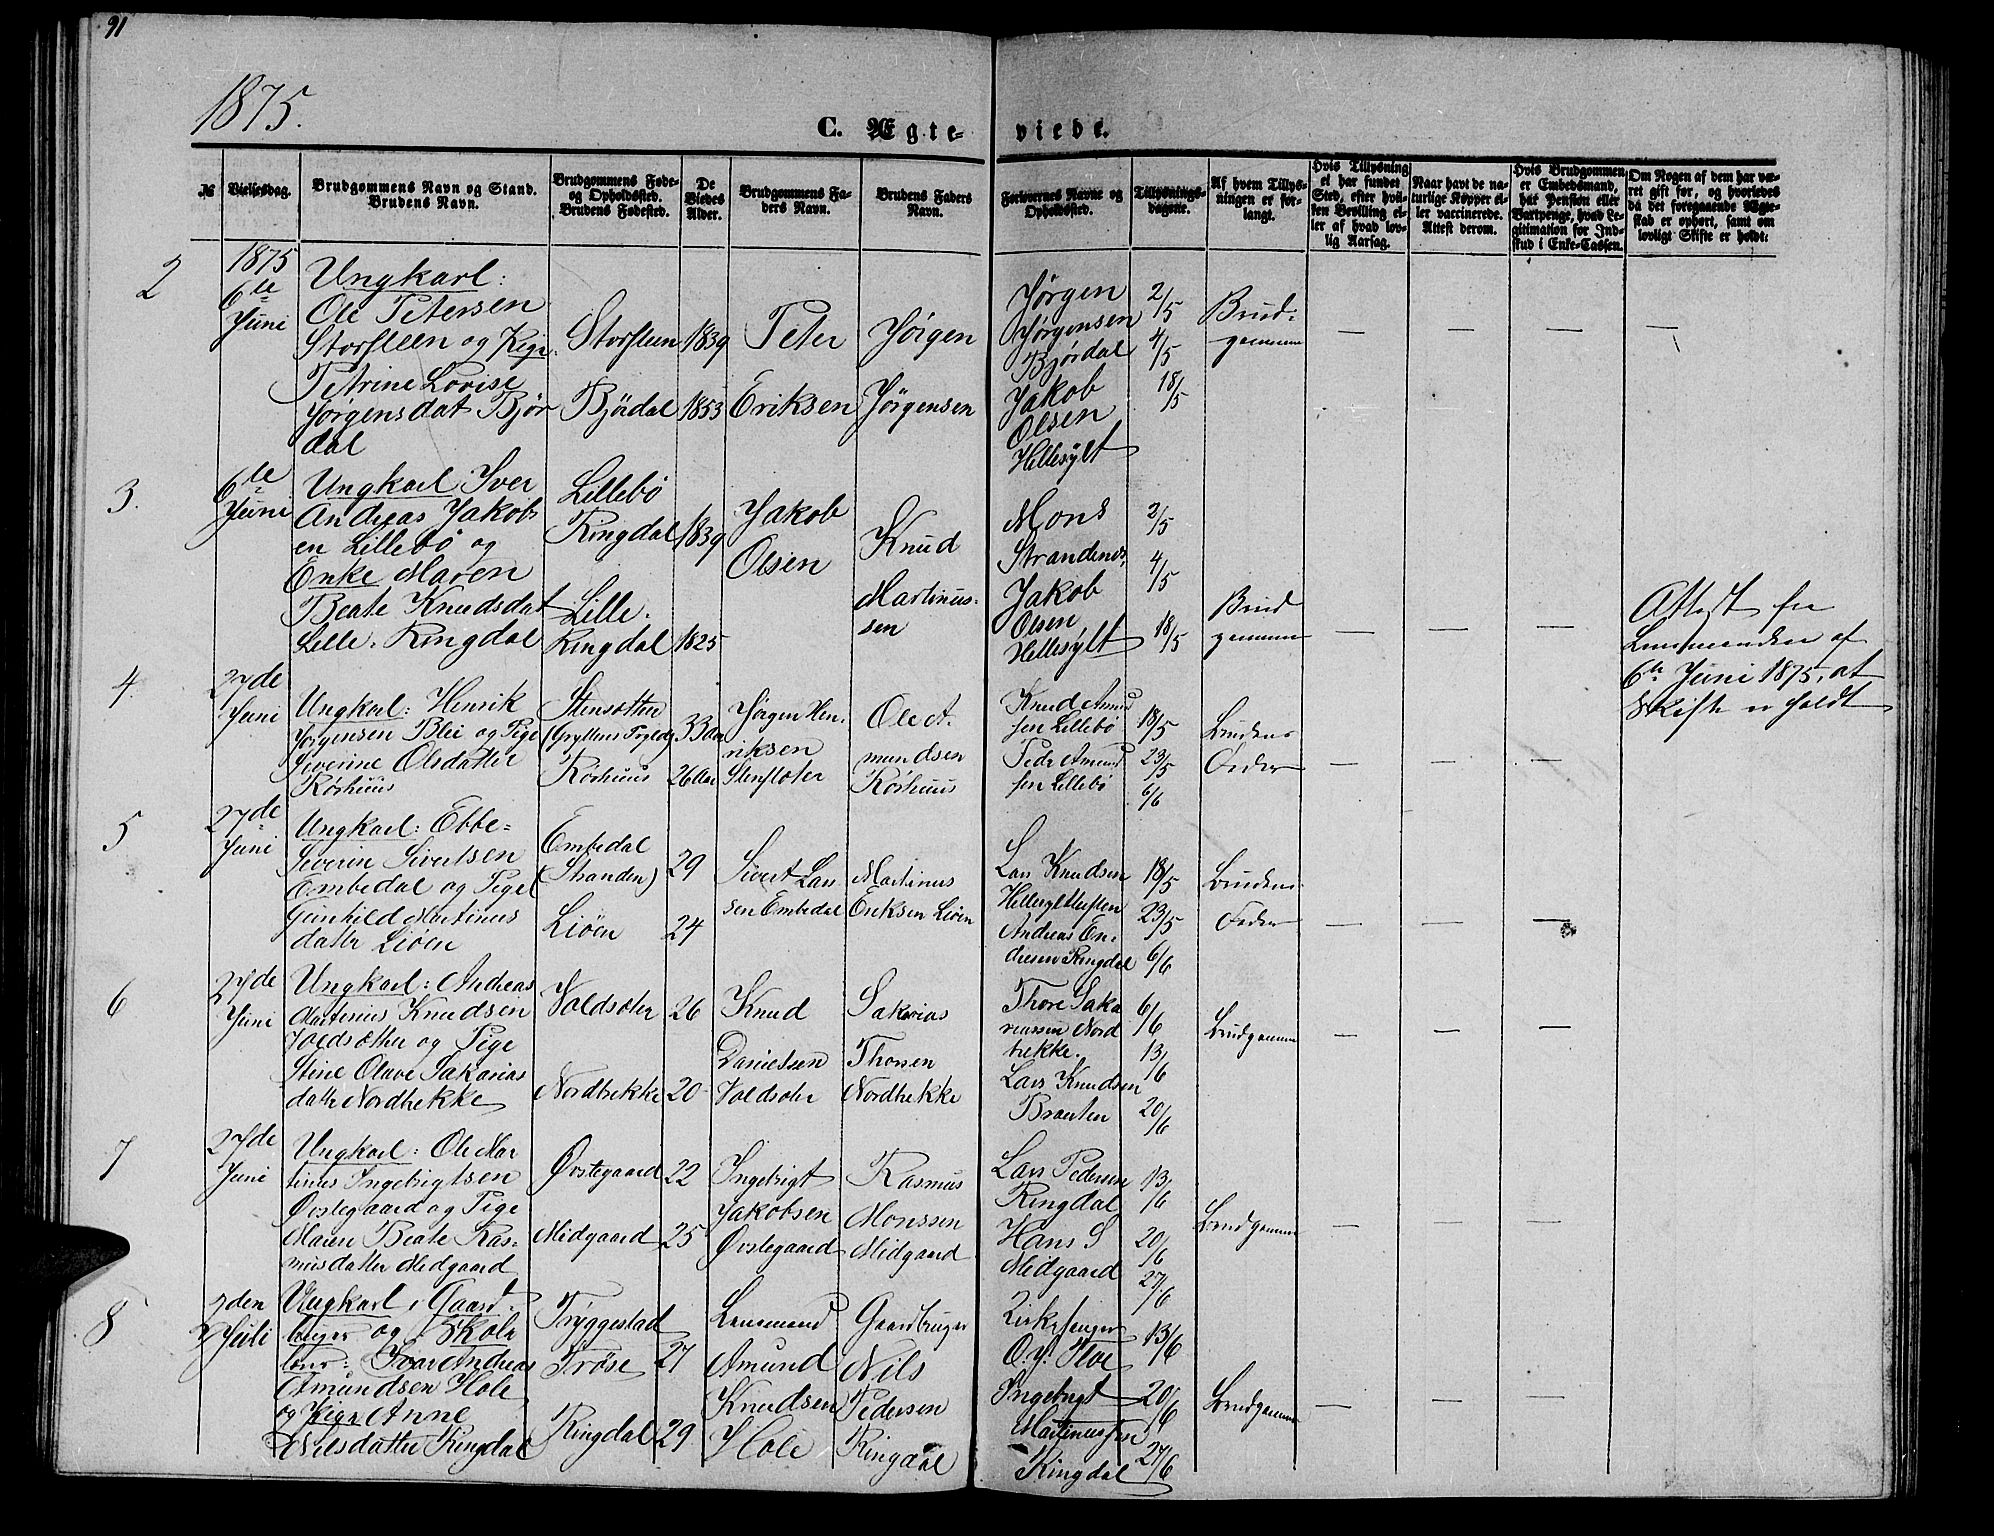 91
1875.
C. Ægte-
viede.
№
Vielsesdag.
Brudgommens Navn og Stand.
Brudens Navn.
Brudgommens Føde-
og Opholdssted.
Brudens Fødested.
De
Viedes
Alder.
Brudgommens Fa-
ders Navn.
Brudens Faders
Navn.
Forlovernes Navne og
Opholdssted.
Tillysnings-
dagene.
Af hvem Tillys-
ningen er for-
langt.
Hvis Tillysning
ei har fundet
Sted, efter hvil-
ken Bevilling el-
ler af hvad lov-
lig Aarsag.
Naar havt de na-
turlige Kopper el-
ler vaccinerede.
Attest derom.
Hvis Brudgommen
er Embedsmand,
har Pension eller
Vartpenge, hvad Le-
gitimation for Ind-
skud i Enke-Cassen.
Om Nogen af dem har væ-
ret gift før, og hvorledes
da det foregaaende Ægte-
skab er ophørt, samt om
lovligt Skifte er holdt:
2
1875
6te
Juni
Ungkarl:
Ole Petersen
Storsteen og Pige
Petrine Lovise
Jørgensdat Bjør
dal
Storsteen
Bjørdal
1839
1853
Peter
Eriksen
Jørgen
Jørgensen
Jørgen
Jørgensen
Bjørdal
Jakob
Olsen
Hellesylt
2/5
4/5
18/5
Brud-
gommen
— — — —
3.
6te
Juni
Ungkarl Iver
Andreas Jakobs
en Lillebø og
Enke Maren
Beate Knudsdat
Lille-Ringdal
Lillebø
Ringdal
Lille-
Ringdal
1839
1825
Jakob
Olsen
Knud
Martinus-
sen
Mons
Strandenes
Jakob
Olsen
Hellesylt
2/5
4/5
18/5
Brud
gommen
— — —
Attest fra
Lensmanden af
6te Juni 1875, at
Skifte er holdt
4.
27de
Juni
Ungkarl: Henrik
Jørgensen Blei og Pige
Severine Olsdatter
Rørhuus
Rørhuus
33 Aar
26 Aar
Jørgen Hen-
riksen
Ole A-
mundsen
Rørhuus
Knud Amund
sen Lillebø
Peder Amund
sen Lillebø
18/5
23/5
6/6
Brudens
Fader
— — —
5
27de
Juni
Ungkarl: Ebbe-
Severin Sivertsen
Embedal og Pige
Gunhild Martinus
datter Liøen
Embedal
(Stranden)
Liøen
29
24
Sivert Lar
sen Embedal
Martinus
Eriksen Liøen
Lars Knudsen
Andreas En-
dresen Ringdal
18/5
23/5
6/6
Brudens
Fader
— — —
6
27de
Juni
Ungkarl: Andreas
Martinus Knudsen
Voldsæther og Pige
Stine Olave Sakarias
datter Nordbrekke
Voldsæter
Nordbrekke
26
20
Knud
Danielsen
Voldsæter
Sakarias
Thorsen
Nordbrekke
Thore Saka
riassen Nord
brekke.
Lars Knudsen
Braaten
6/6
13/6
20/6
Brudgommen
— — —
7
27de
Juni
Ungkarl: Ole Mar
tinus Ingebrigtsen
Øvstegaard og Pige
Maren Beate Ras-
musdatter Midgaard
Øvstegaard
Midgaard
22
25
Ingebrigt
Jakobsen
Øvstegaard
Rasmus
Monssen
Midgaard
Lars Pedersen
Ringdal
Hans S
Midgaard
13/6
20/6
27/6
Brudgommen
— — —
8
2den
Juli
Ungkarl, Gaard-
bruger og Skole
lærer: Ivar Andreas
Amundsen Hole
og Pige Anne
Nilsdatter Ringdal
Tryggestad
Ringdal
27
29
Lensmand
Amund
Knudsen
Hole
Gaardbruger
Nils
Pedersen
Ringdal
Kirkesanger
Ingebrigt
Martinussen
Ringdal
13/6
20/6
27/6
Brudgommen
— — —